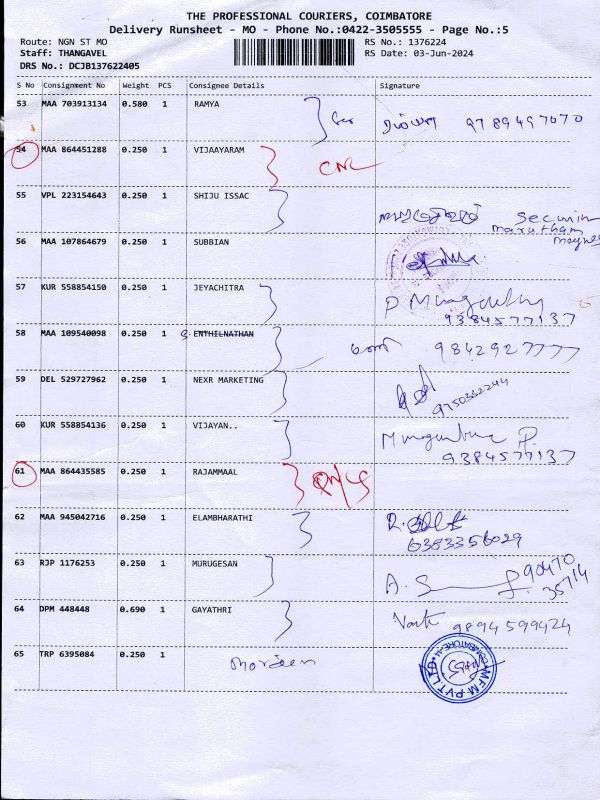 THE PROFESSIONAL COURIERS, COIMBATORE
Delivery Runsheet - MO - Phone No.:0422-3505555 - Page No.:5
Route: NGN ST MO RS No.: 1376224
Staff: THANGAVEL RS Date: 03-Jun-2024
DRS No.: DCJB137622405
S No Consignment No Weight PCS Consignee Details Signature
53 MAA 703913134 0.580 1 RAMYA ரம்யா 9789497070
54 MAA 864451288 0.250 1 VIJAAYARAM CNL
55 VPL 223154643 0.250 1 SHIJU ISSAC
Marutham
56 MAA 107864679 0.250 1 SUBBIAN
57 KUR 558854150 0.250 1 JEYACHITRA
9384577137
58 MAA 109540098 S.ENTHILNATHAN 9842927777
59 DEL 529727962 0.250 1 NEXR MARKETING
9750362244
60 KUR 558854136 0.250 1 VIJAYAN..
9384577137
61 MAA 864435585 0.250 1 RAJAMMAAL
62 MAA 945042716 0.250 1 ELAMBHARATHI
6383356029
63 RJP 1176253 0.250 1 MURUGESAN A. S 90470
35714
64 DPM 448448 0.690 1 GAYATHRI
9894599424
65 TRP 6395084 0.250 1
MFM PVT LTD
COIMBATORE-44